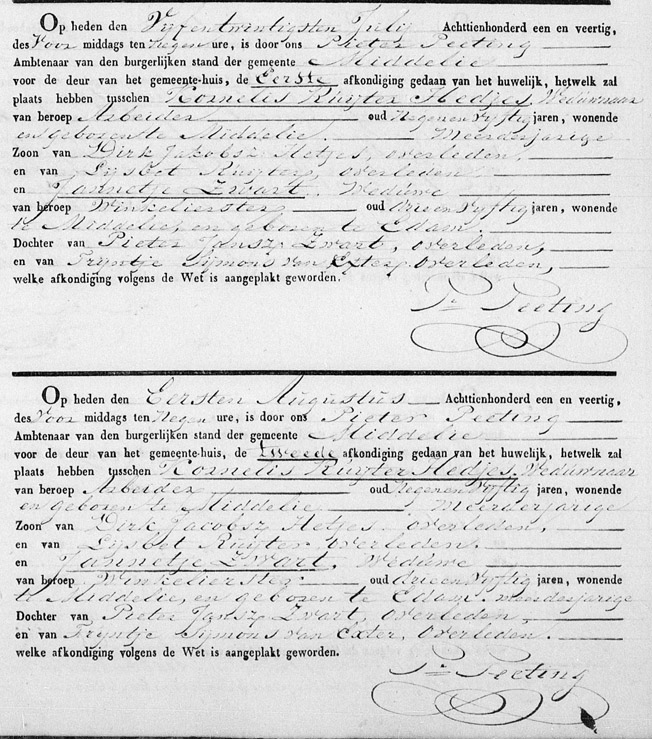 Op heden den Vijfentwintigsten Julij Achttienhonderd een en veertig,
des Voor middags ten Negen ure, is door ons Pieter Peeting
Ambtenaar van den burgerlijken stand der gemeente Middelie
voor de deur van het gemeente-huis, de Eerste afkondiging gedaan van het huwelijk, hetwelk zal
plaats hebben tusschen Kornelis Ruyter Hedjes, Weduwnaar
van beroep Arbeider oud Negenenvyftig jaren, wonende
en geboren te Middelie. Meerderjarige
Zoon van Dirk Jakobsz Hetjes, overleden,
en van Lysbet Ruyter, overleden,
en Jannetje Zwart, Weduwe
van beroep Winkelierster oud Drieenvyftig jaren, wonende
te Middelie, en geboren te Edam.
Dochter van Pieter Jansz Zwart, overleden,
en van Tryntje Symons van Exter, overleden,
welke afkondiging volgens de Wet is aangeplakt geworden.
Pr Peeting
Op heden den Eersten Augustus Achttienhonderd een en veertig,
des Voor middags ten Negen ure, is door ons Pieter Peeting
Ambtenaar van den burgerlijken stand der gemeente Middelie
voor de deur van het gemeente-huis, de tweede afkondiging gedaan van het huwelijk, hetwelk zal
plaats hebben tusschen Kornelis Ruyter Hedjes, Weduwnaar
van beroep Arbeider oud Negenenvyftig jaren, wonende
en geboren te Middelie Meerderjarige
Zoon van Dirk Jacobsz Hetjes, overleden,
en van Lysbet Ruyter overleden.
en Jannetje Zwart, Weduwe
van beroep Winkelierster oud Drieenvyftig jaren, wonende
te Middelie, en geboren te Edam. meerderjarige
Dochter van Pieter Jansz Zwart overleden
en van Tryntje Symons van Exter, overleden.
welke afkondiging volgens de Wet is aangeplakt geworden.
Pr Peeting